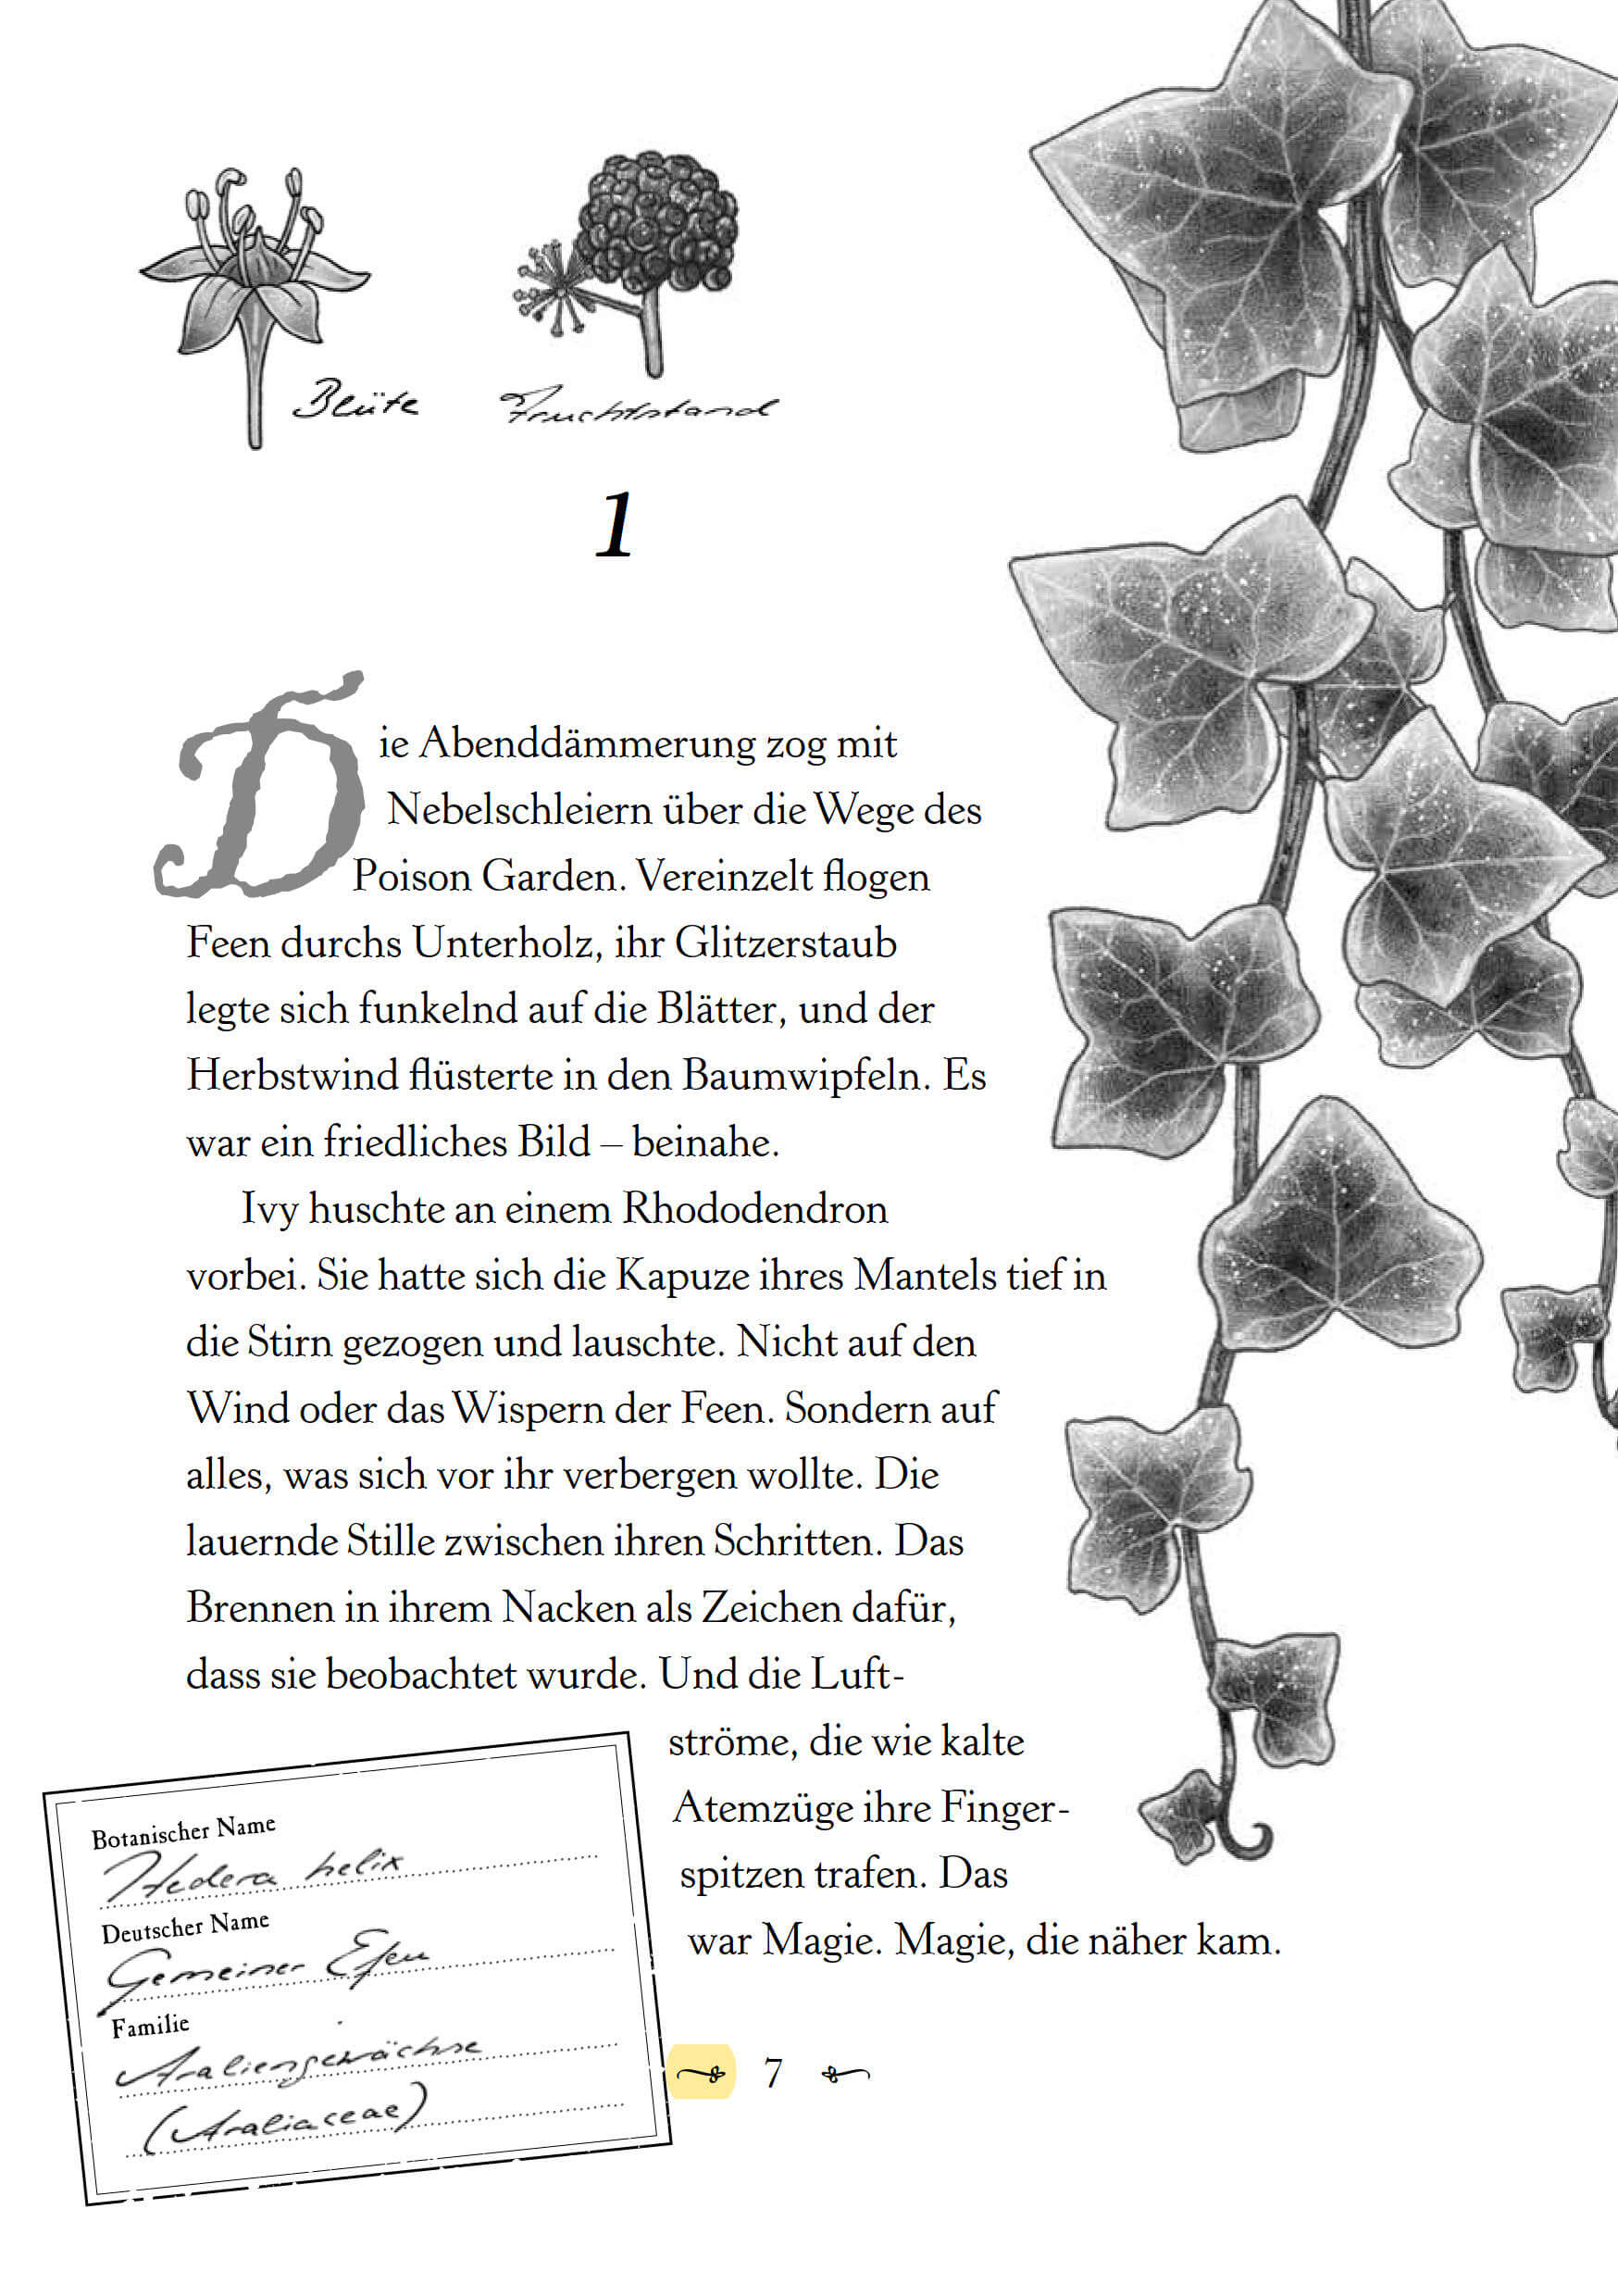 Blüte
Fruchtstand
1
Die Abenddämmerung zog mit
Nebelschleiern über die Wege des
Poison Garden. Vereinzelt flogen
Feen durchs Unterholz, ihr Glitzerstaub
legte sich funkelnd auf die Blätter, und der
Herbstwind flüsterte in den Baumwipfeln. Es
war ein friedliches Bild – beinahe.
Ivy huschte an einem Rhododendron
vorbei. Sie hatte sich die Kapuze ihres Mantels tief in
die Stirn gezogen und lauschte. Nicht auf den
Wind oder das Wispern der Feen. Sondern auf
alles, was sich vor ihr verbergen wollte. Die
lauernde Stille zwischen ihren Schritten. Das
Brennen in ihrem Nacken als Zeichen dafür,
dass sie beobachtet wurde. Und die Luft-
ströme, die wie kalte
Atemzüge ihre Finger-
spitzen trafen. Das
war Magie. Magie, die näher kam.
Botanischer Name
Hedera helix
Deutscher Name
Gemeiner Efeu
Familie
Araliengewächse
(Araliaceae)
7